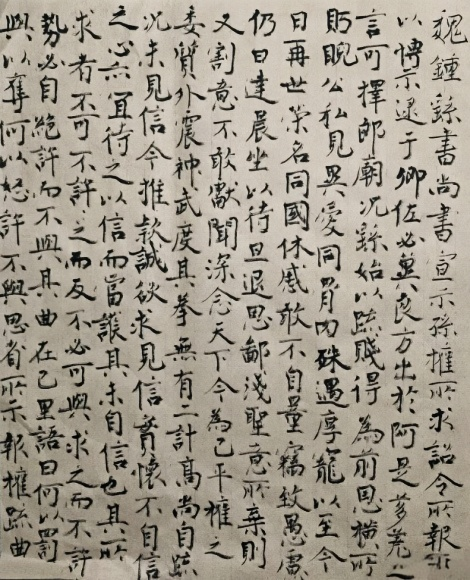 魏鍾繇書尚書宣示孫權所求詔令所報所
以博示逮于卿佐必冀良方出於阿是芻蕘之
言可擇郎廟況繇始以疏賤得為前恩橫所
盱睨公私見異愛同骨肉殊遇厚寵以至今
日再世榮名同國休慼敢不自量竊致愚慮
仍日達晨坐以待旦退思鄙淺聖意所棄則
又割意不敢獻聞深念天下今為已平權之
委質外震神武度其拳無有二計高尚自疏
況未見信今推款誠欲求見信實懷不自信
之心亦宜待之以信而當護其未自信也其所
求者不可不許之而反不必可與求之而不許
勢必自絕許而不與其曲在己里語曰何以罰
與以奪何以怒許不與思省所示報權疏曲